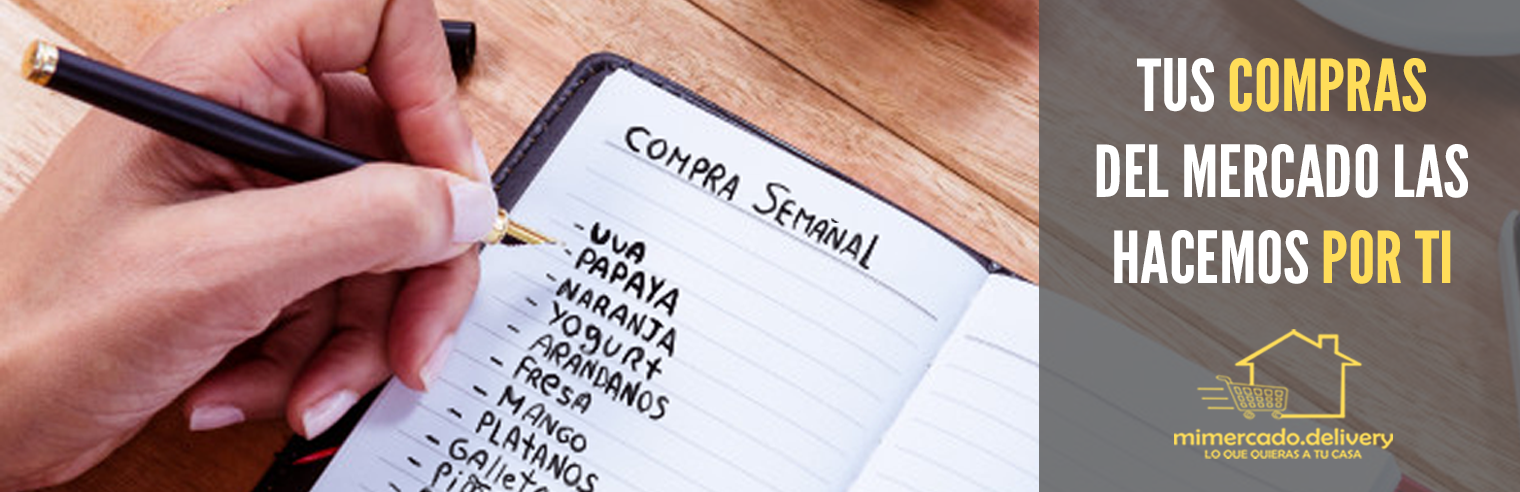 COMPRA SEMAÑAL
- UVA
- PAPAYA
- NARANJA
- YOgURt
- ARANDANOS
- FRESA
- MANGO
- PLATANOS
- GAlleta
TUS COMPRAS
DEL MERCADO LAS
HACEMOS POR TI
mimercado.delivery
LO QUE QUIERAS A TU CASA